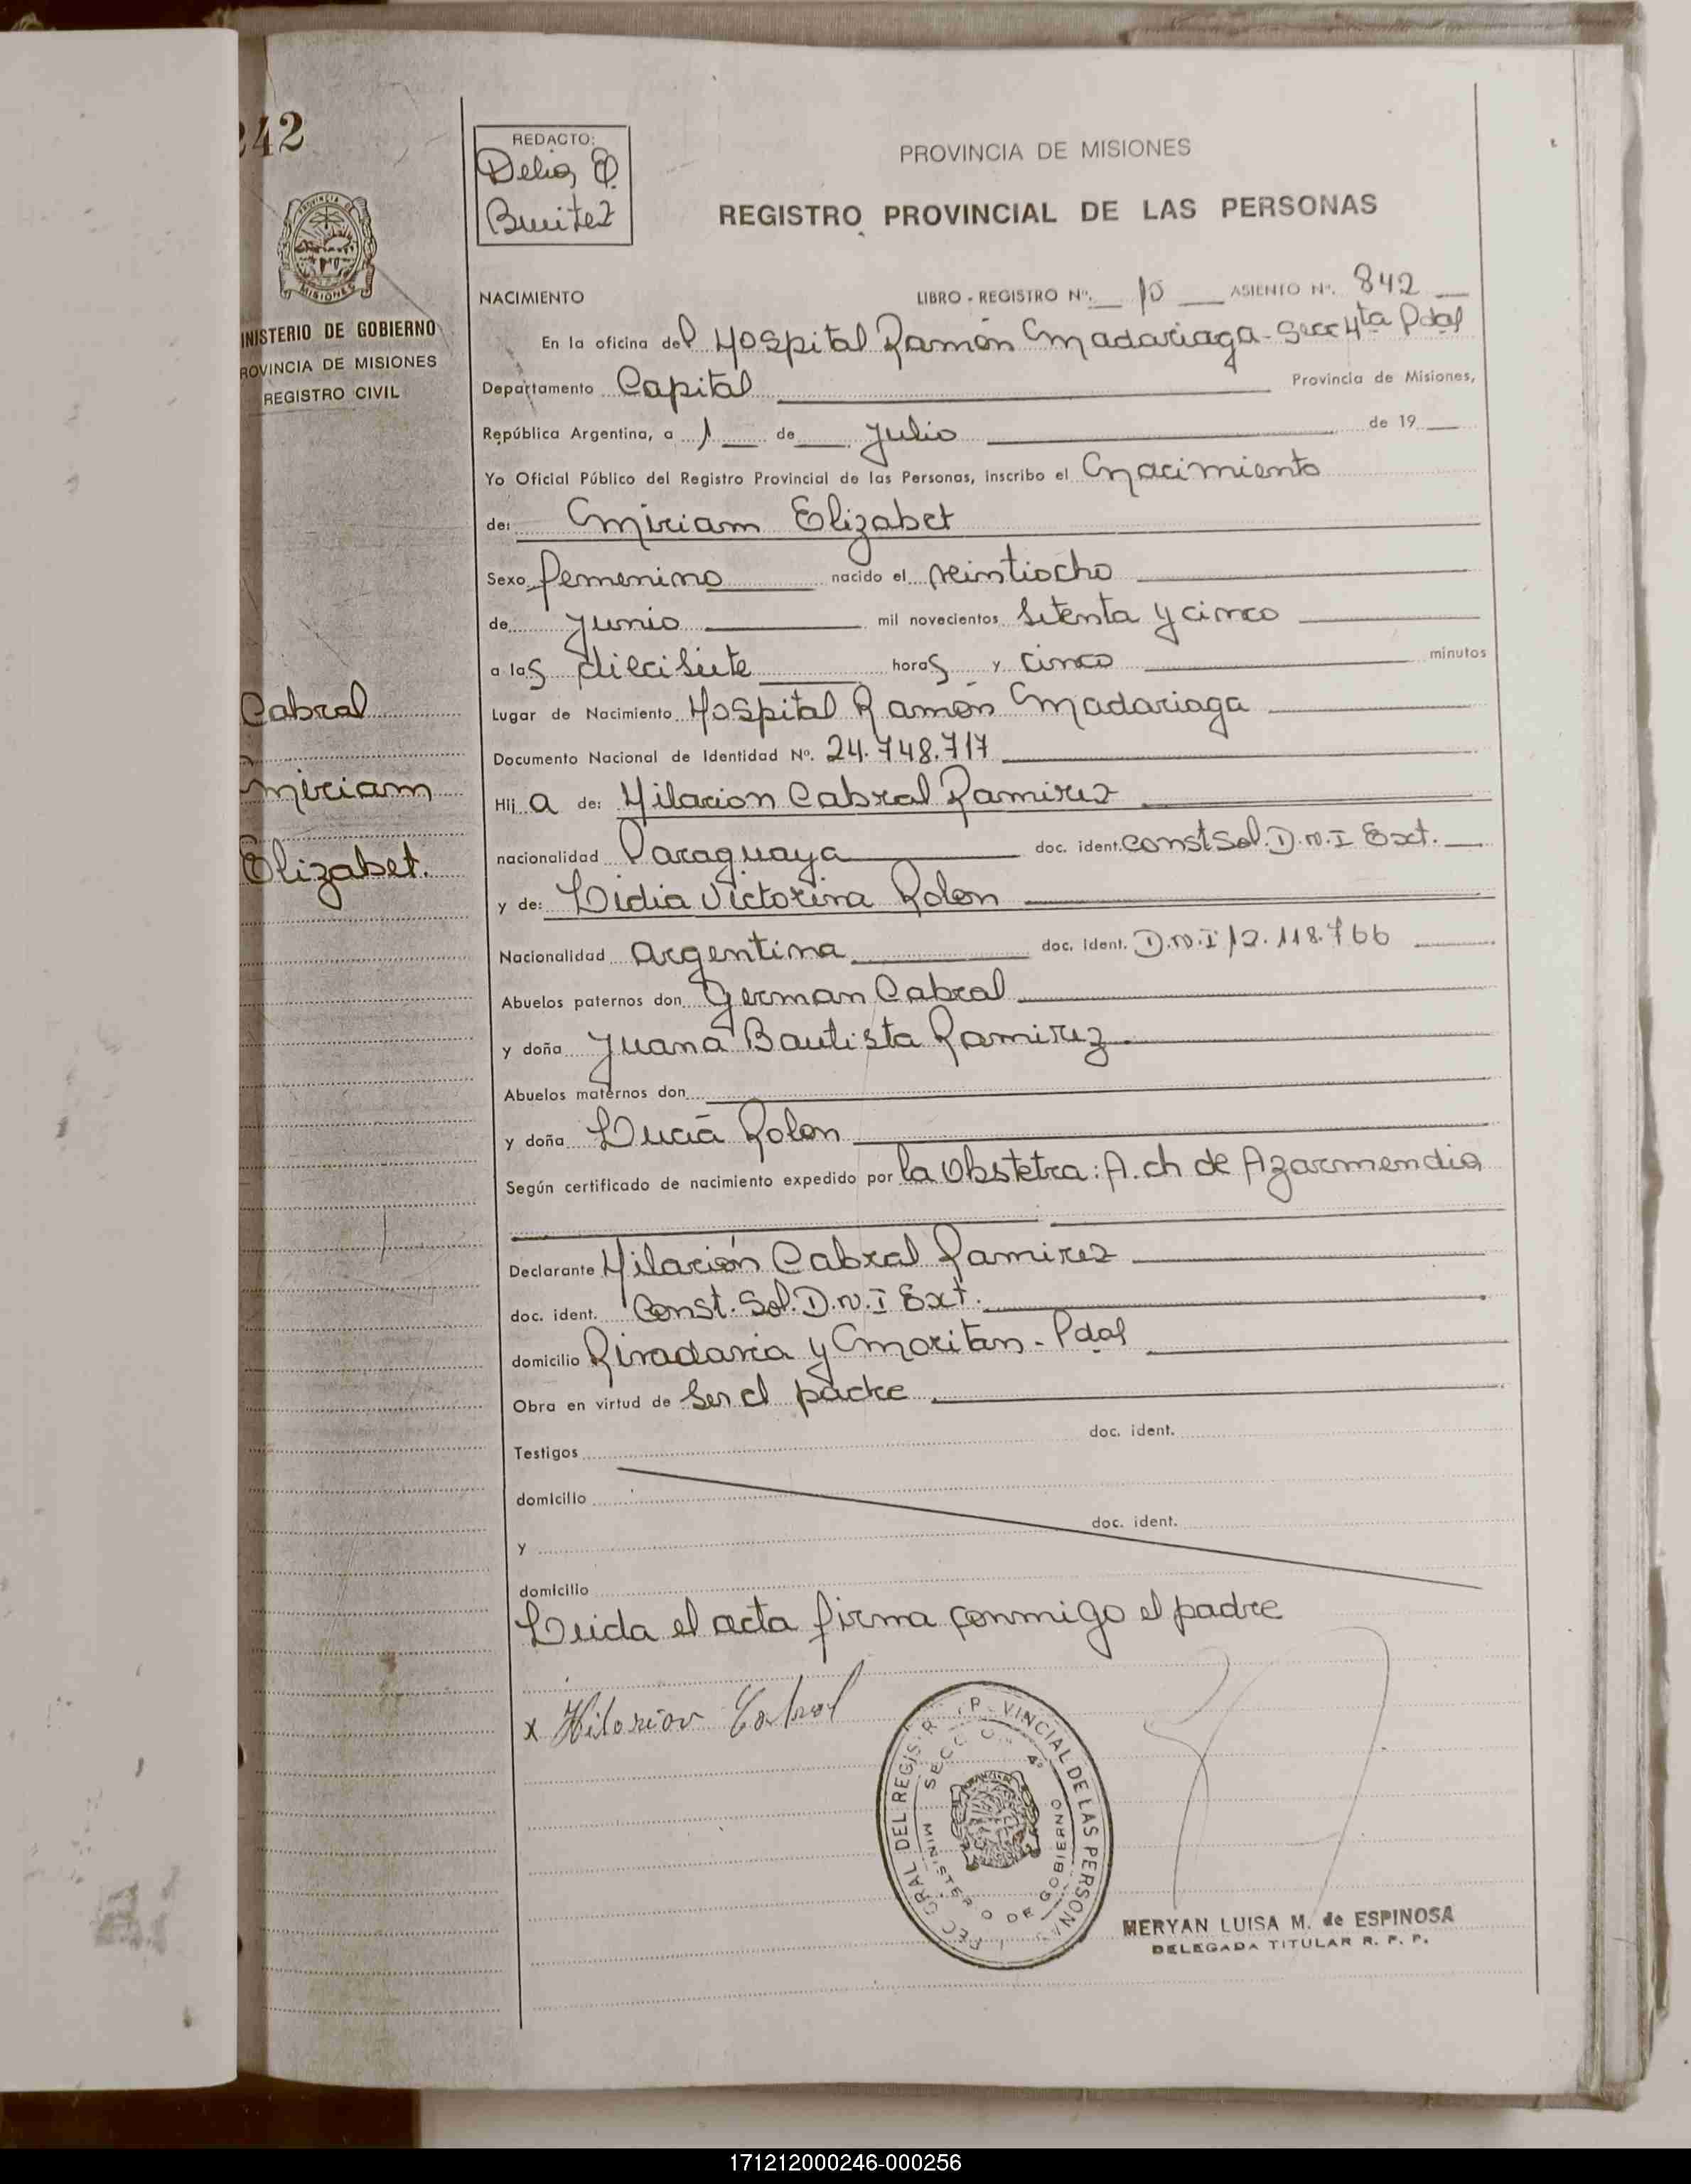 242
REDACTO:
Delia
Benitez
PROVINCIA DE MISIONES
REGISTRO PROVINCIAL DE LAS PERSONAS
PROVINCIA DE
MISIONES
INISTERIO DE GOBIERNO
ROVINCIA DE MISIONES
REGISTRO CIVIL
NACIMIENTO LIBRO - REGISTRO Nº. 10 ASIENTO Nº. 842
En la oficina del Hospital Ramón Madariaga - Secc 4ta Pdas
Departamento Capital Provincia de Misiones,
República Argentina, a 1 de Julio de 19
Yo Oficial Público del Registro Provincial de las Personas, inscribo el Nacimiento
de: Miriam Elizabet
Sexo femenino nacido el veintiocho
de Junio mil novecientos setenta y cinco
a las diecisiete horas y cinco minutos
Lugar de Nacimiento Hospital Ramón Madariaga
Documento Nacional de Identidad Nº. 24.748.717
Hij a de: Hilarion Cabral Ramirez
nacionalidad Paraguaya doc. ident. Const Sol. D.N.I Ext.
y de: Lidia Victorina Rolon
Nacionalidad Argentina doc. ident. D.N.I 12.118.766
Abuelos paternos don German Cabral
y doña Juana Bautista Ramirez
Abuelos maternos don
y doña Lucia Rolon
Según certificado de nacimiento expedido por la Obstetra: A. ch de Azarmendia
Declarante Hilarión Cabral Ramirez
doc. ident. Const. Sol. D.N.I Ext.
domicilio Rivadavia y Moritan - Pdas
Obra en virtud de ser el padre
Testigos doc. ident.
domicilio
y doc. ident.
domicilio
Leida el acta firma conmigo el padre
x Hilarion Cabral
Cabral
Miriam
Elizabet.
GRAL DEL REGIS VINCIAL DE LAS PERSONA
SECC 4º
MINISTERIO DE GOBIERNO
MERYAN LUISA M. de ESPINOSA
DELEGADA TITULAR R. P. P.
171212000246-000256